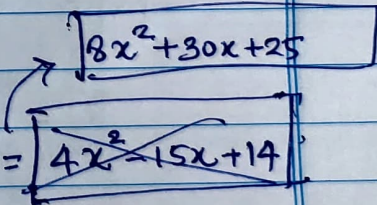 8x²+30x+25
= 4x²-15x+14